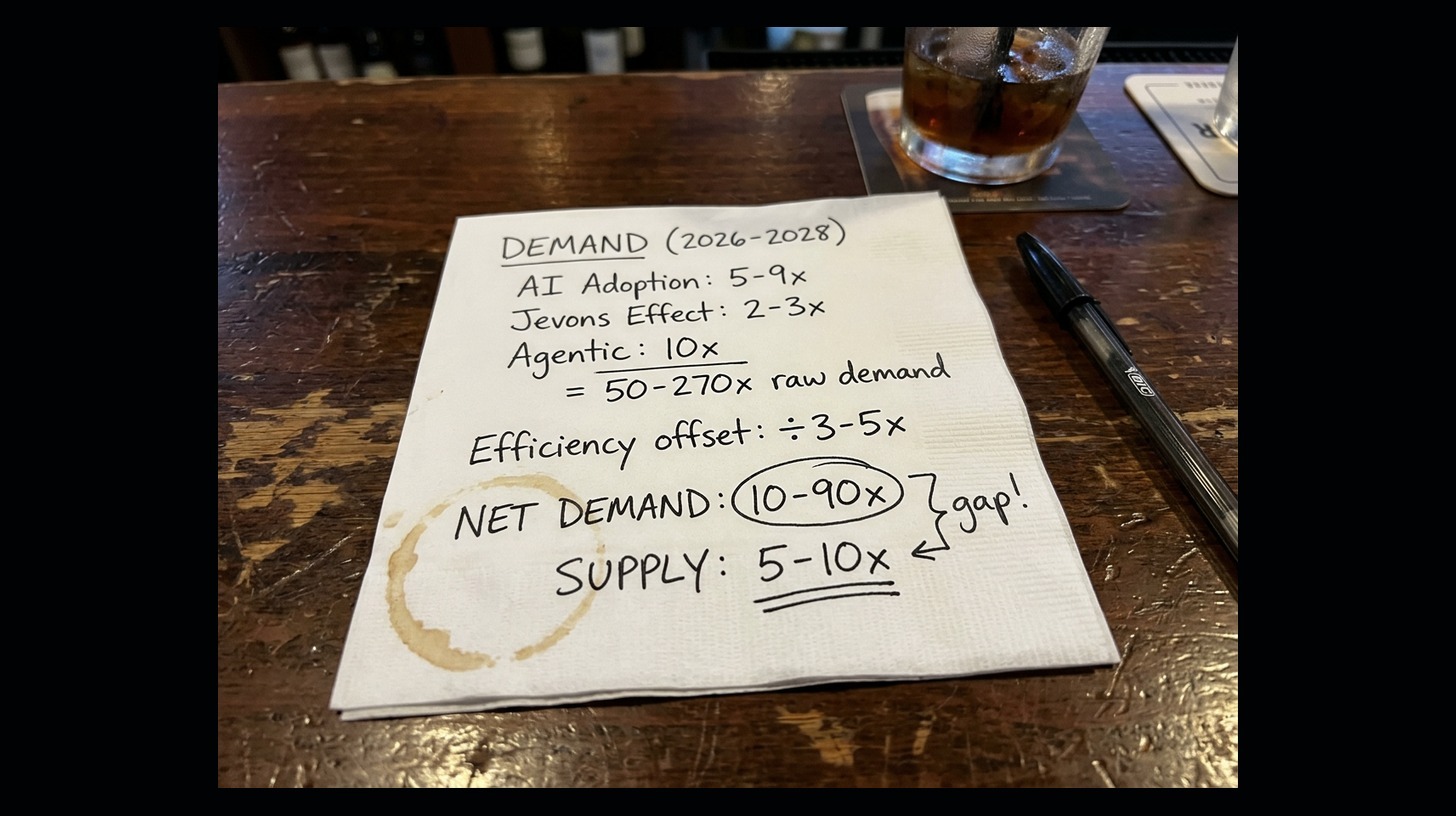 DEMAND (2026-2028)
AI Adoption: 5-9x
Jevons Effect: 2-3x
Agentic: 10x
= 50-270x raw demand
Efficiency offset: ÷3-5x
NET DEMAND: 10-90x
gap!
SUPPLY: 5-10x
BIC